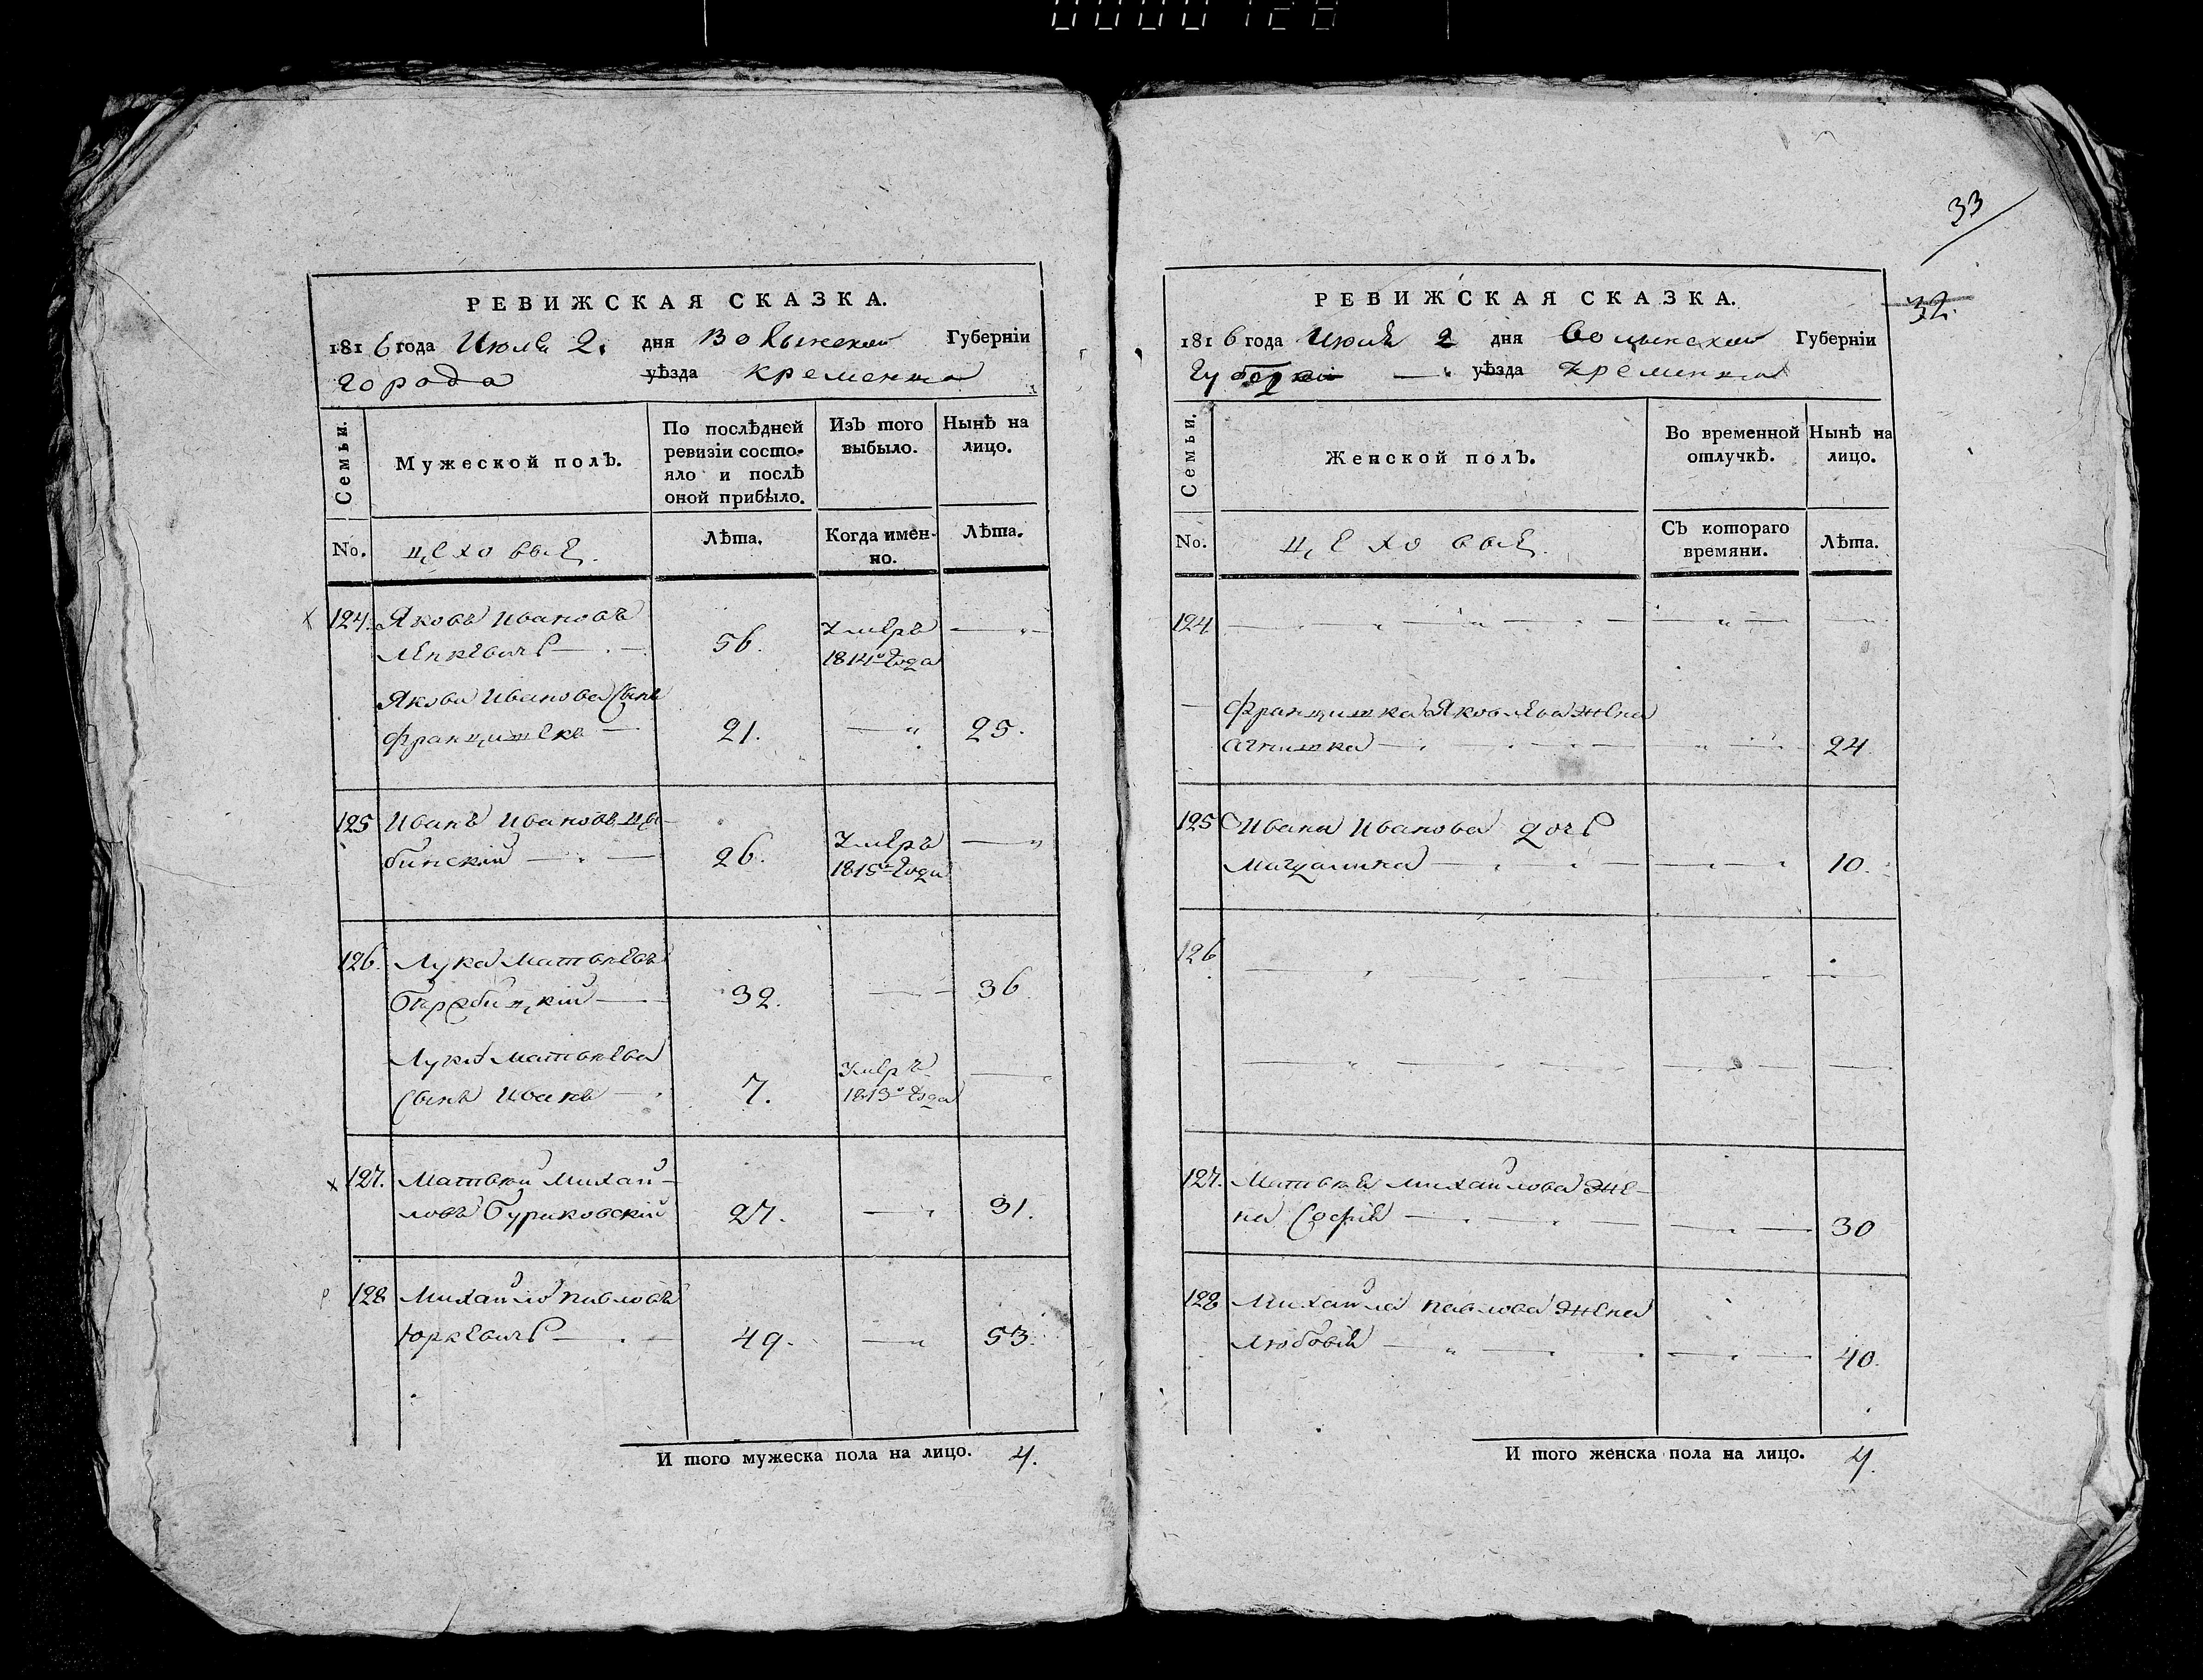 0000128
РЕВИЖСКАЯ СКАЗКА.
1816 года Июля 2. дня Волынской Губерніи
города уѣзда кременца
Семьи. Мужеской полъ. По послѣдней ревизіи состояло и послѣ оной прибыло. Изъ того выбыло. Нынѣ на лицо.
No. цеховыя. Лѣта. Когда имен-но. Лѣта.
124. Яковъ Ивановъ Умеръ
Ленкевичь 56. 1814го года
Якова Иванова Сынъ
францишекъ 21. 25.
125 Иванъ Ивановъ Умеръ
26. 1815го года
126. Лука Матвѣевъ
32. 36
Луки Матвѣева Умеръ
Сынъ Иванъ 7. 1813го года
127. Матвѣй Михай-
ловъ Буриковскій 27. 31.
128 Михайло павловъ
Юркевичь 49. 53.
И того мужеска пола на лицо. 4.
33
32.
РЕВИЖСКАЯ СКАЗКА.
1816 года Июля 2 дня Волынской Губерніи
уѣзда кременца
Семьи. Женской полъ. Во временной отлучкѣ. Нынѣ на лицо.
No. цеховыя. Съ котораго времяни. Лѣта.
124
францишка Яковлева жена
агнишка 24
125 Ивана Иванова дочь
Магдалина 10.
126
127. Матвѣя михайлова же-
на Софія 30
128 Михайла павлова жена
Любовія 40.
И того женска пола на лицо. 4.